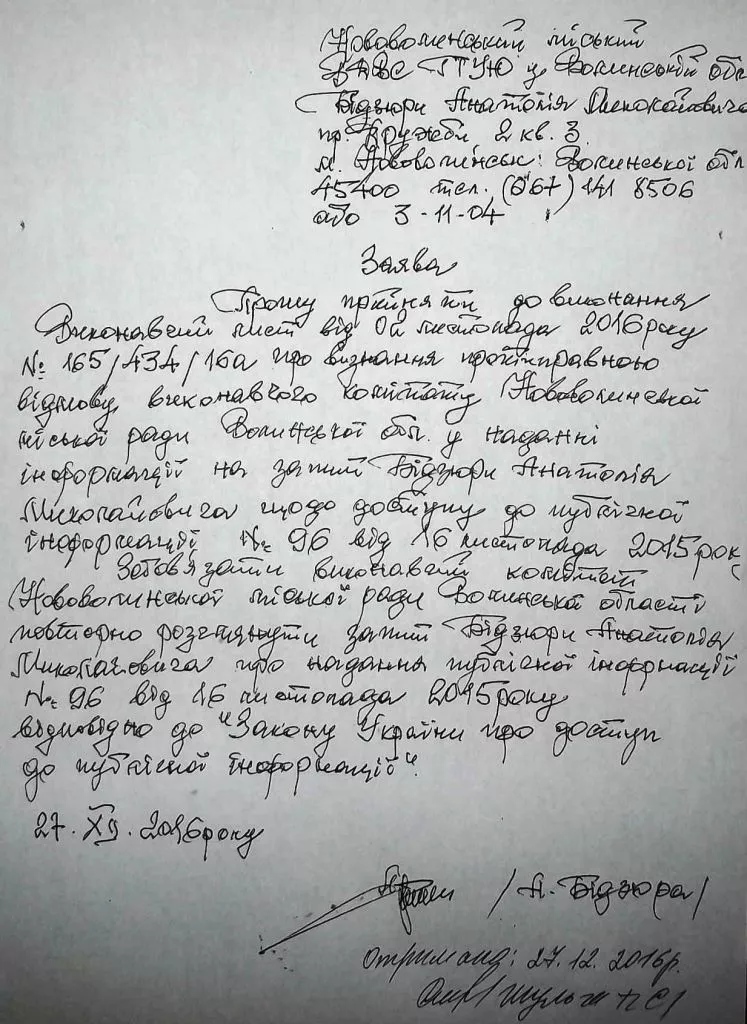 Нововолинський міський
ВДВС ГТУЮ у Волинській обл
Бідзюри Анатолія Миколайовича
пр. Дружби 2 кв. 3
м. Нововолинськ Волинської обл
45400 тел. (067) 141 8506
або 3-11-04
Заява
Прошу прийняти до виконання
Виконавчий лист від листопада 2016 року
№ 165/434/16а про визнання протиправною
відмову виконавчого комітету Нововолинської
міської ради Волинської обл. у наданні
інформації на запит Бідзюри Анатолія
Миколайовича щодо доступу до публічної
інформації № 96 від 16 листопада 2015 рок
Зобов'язати виконавчий комітет
Нововолинської міської ради Волинської області
повторно розглянути запит Бідзюри Анатолія
Миколайовича про надання публічної інформації
№ 96 від 16 листопада 2015 року
відповідно до "Закону України про доступ
до публічної інформації".
27. XII. 2016 року
/А. Бідзюра/
отримала: 27.12.2016р.